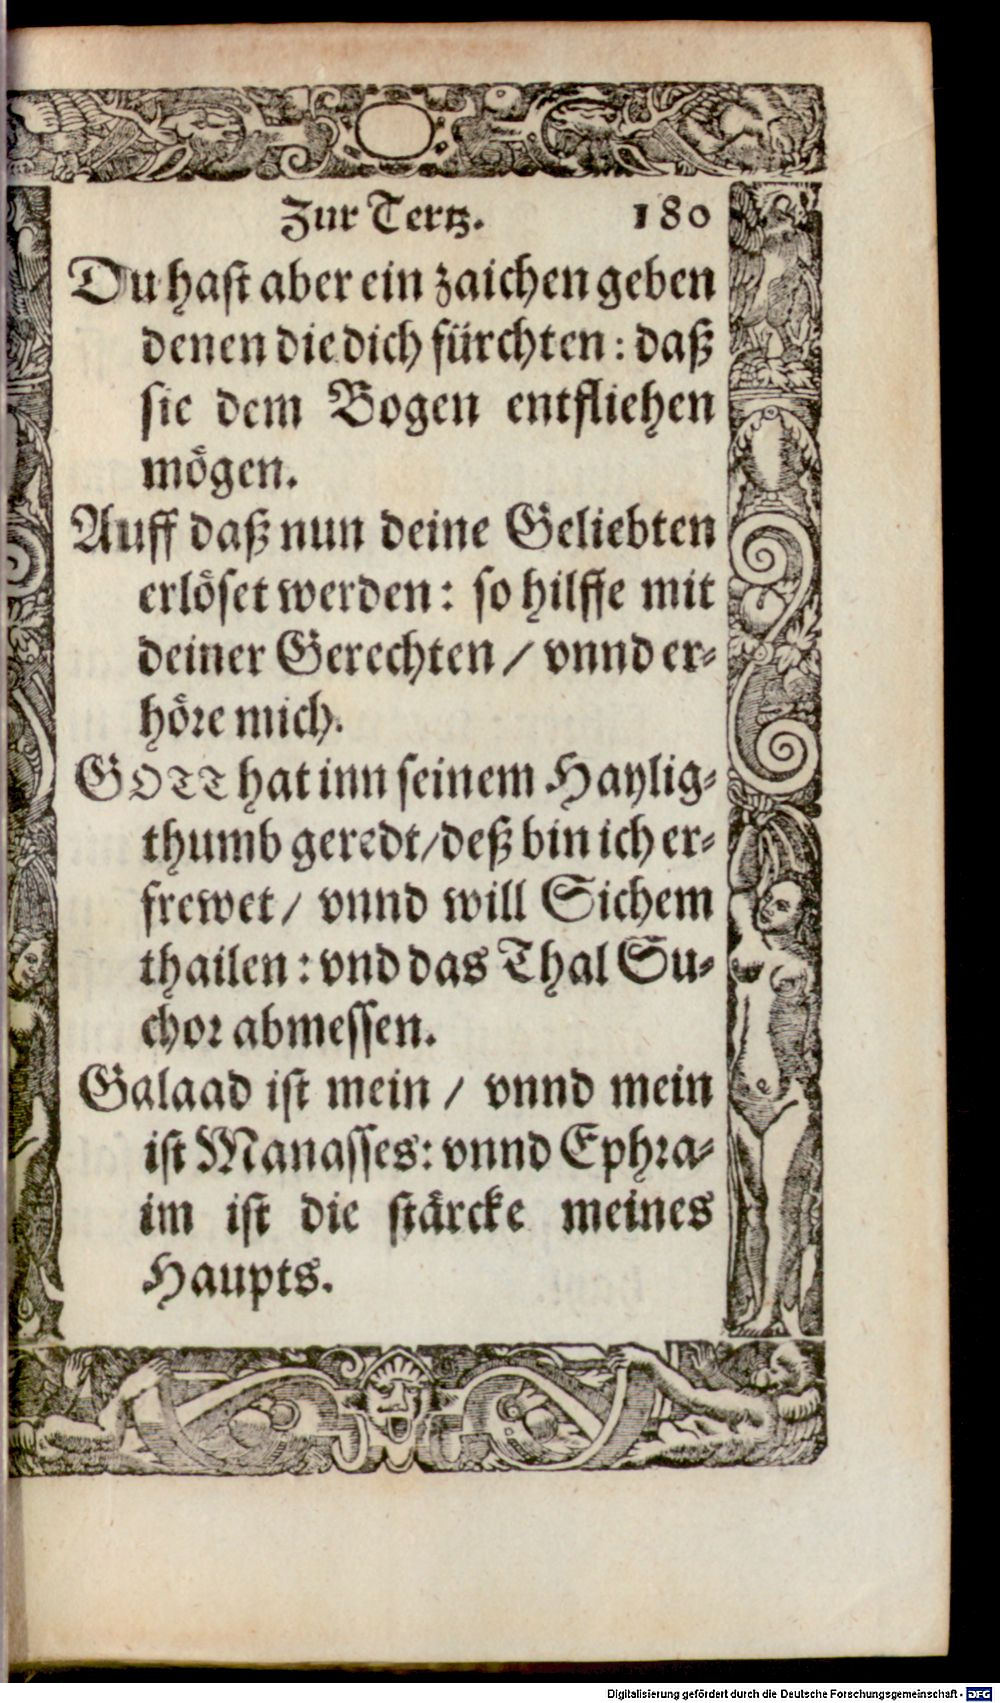 Zur Tertz. 180
Du hast aber ein zaichen geben
denen die dich fürchten: daß
sie dem Bogen entfliehen
mögen.
Auff daß nun deine Geliebten
erlöset werden: so hilffe mit
deiner Gerechten / vnnd er-
höre mich.
GOTT hat inn seinem Haylig-
thumb geredt/ deß bin ich er-
frewet / vnnd will Sichem
thailen: vnd das Thal Su-
chor abmessen.
Galaad ist mein / vnnd mein
ist Manasses: vnnd Ephra-
im ist die stärcke meines
Haupts.
Digitalisierung gefördert durch die Deutsche Forschungsgemeinschaft - DFG